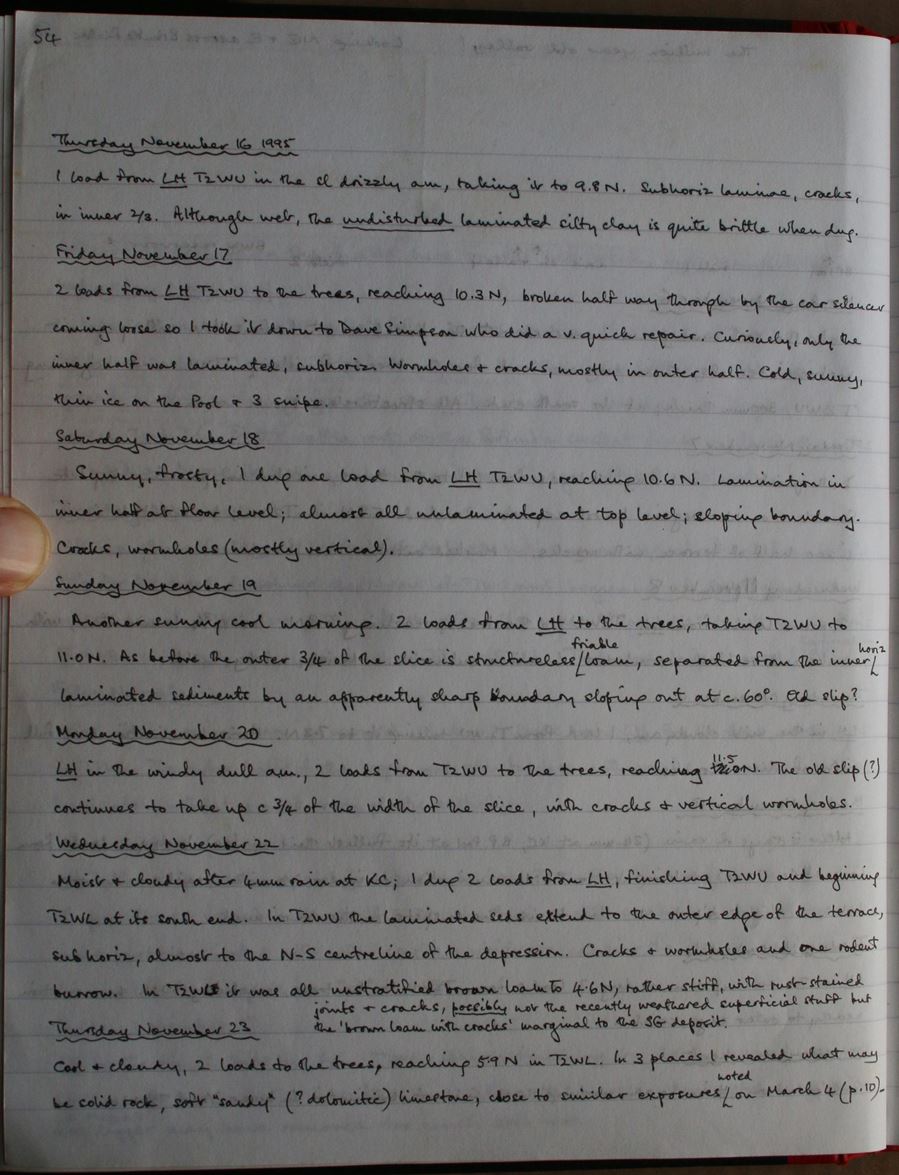 54
Thursday November 16 1995
1 load from LH T2WU in the cl drizzly am, taking it to 9.8 N. Subhoriz laminae, cracks,
in inner 2/3. Although wet, the undisturbed laminated silty clay is quite brittle when dug.
Friday November 17
2 loads from LH T2WU to the trees, reaching 10.3 N, broken half way through by the car silencer
coming loose so I took it down to Dave Simpson who did a v. quick repair. Curiously, only the
inner half was laminated, subhoriz. Wormholes + cracks, mostly in outer half. Cold, sunny,
thin ice on the Pool + 3 snipe.
Saturday November 18
Sunny, frosty, I dug one load from LH T2WU, reaching 10.6 N. Lamination in
inner half at floor level; almost all unlaminated at top level; sloping boundary.
Cracks, wormholes (mostly vertical).
Sunday November 19
Another sunny cool morning. 2 loads from LH to the trees, taking T2WU to
11.0 N. As before the outer 3/4 of the slice is structureless friable loam, separated from the inner horiz
laminated sediments by an apparently sharp boundary sloping out at c. 60°. Old slip?
Monday November 20
LH in the windy dull am., 2 loads from T2WU to the trees, reaching 11.5 N. The old slip (?)
continues to take up c 3/4 of the width of the slice, with cracks + vertical wormholes.
Wednesday November 22
Moist + cloudy after 4mm rain at KC; I dug 2 loads from LH, finishing T2WU and beginning
T2WL at its south end. In T2WU the laminated seds extend to the outer edge of the terrace,
subhoriz, almost to the N-S centreline of the depression. Cracks + wormholes and one rodent
burrow. In T2WL it was all unstratified brown loam to 4.6 N, rather stiff, with rust-stained
joints + cracks, possibly not the recently weathered superficial stuff but
the 'brown loam with cracks' marginal to the SG deposit.
Thursday November 23
Cool + cloudy, 2 loads to the trees, reaching 5.9 N in T2WL. In 3 places I revealed what may
be solid rock, soft "sandy" (? dolomitic) limestone, close to similar exposures noted on March 4 (p.10).